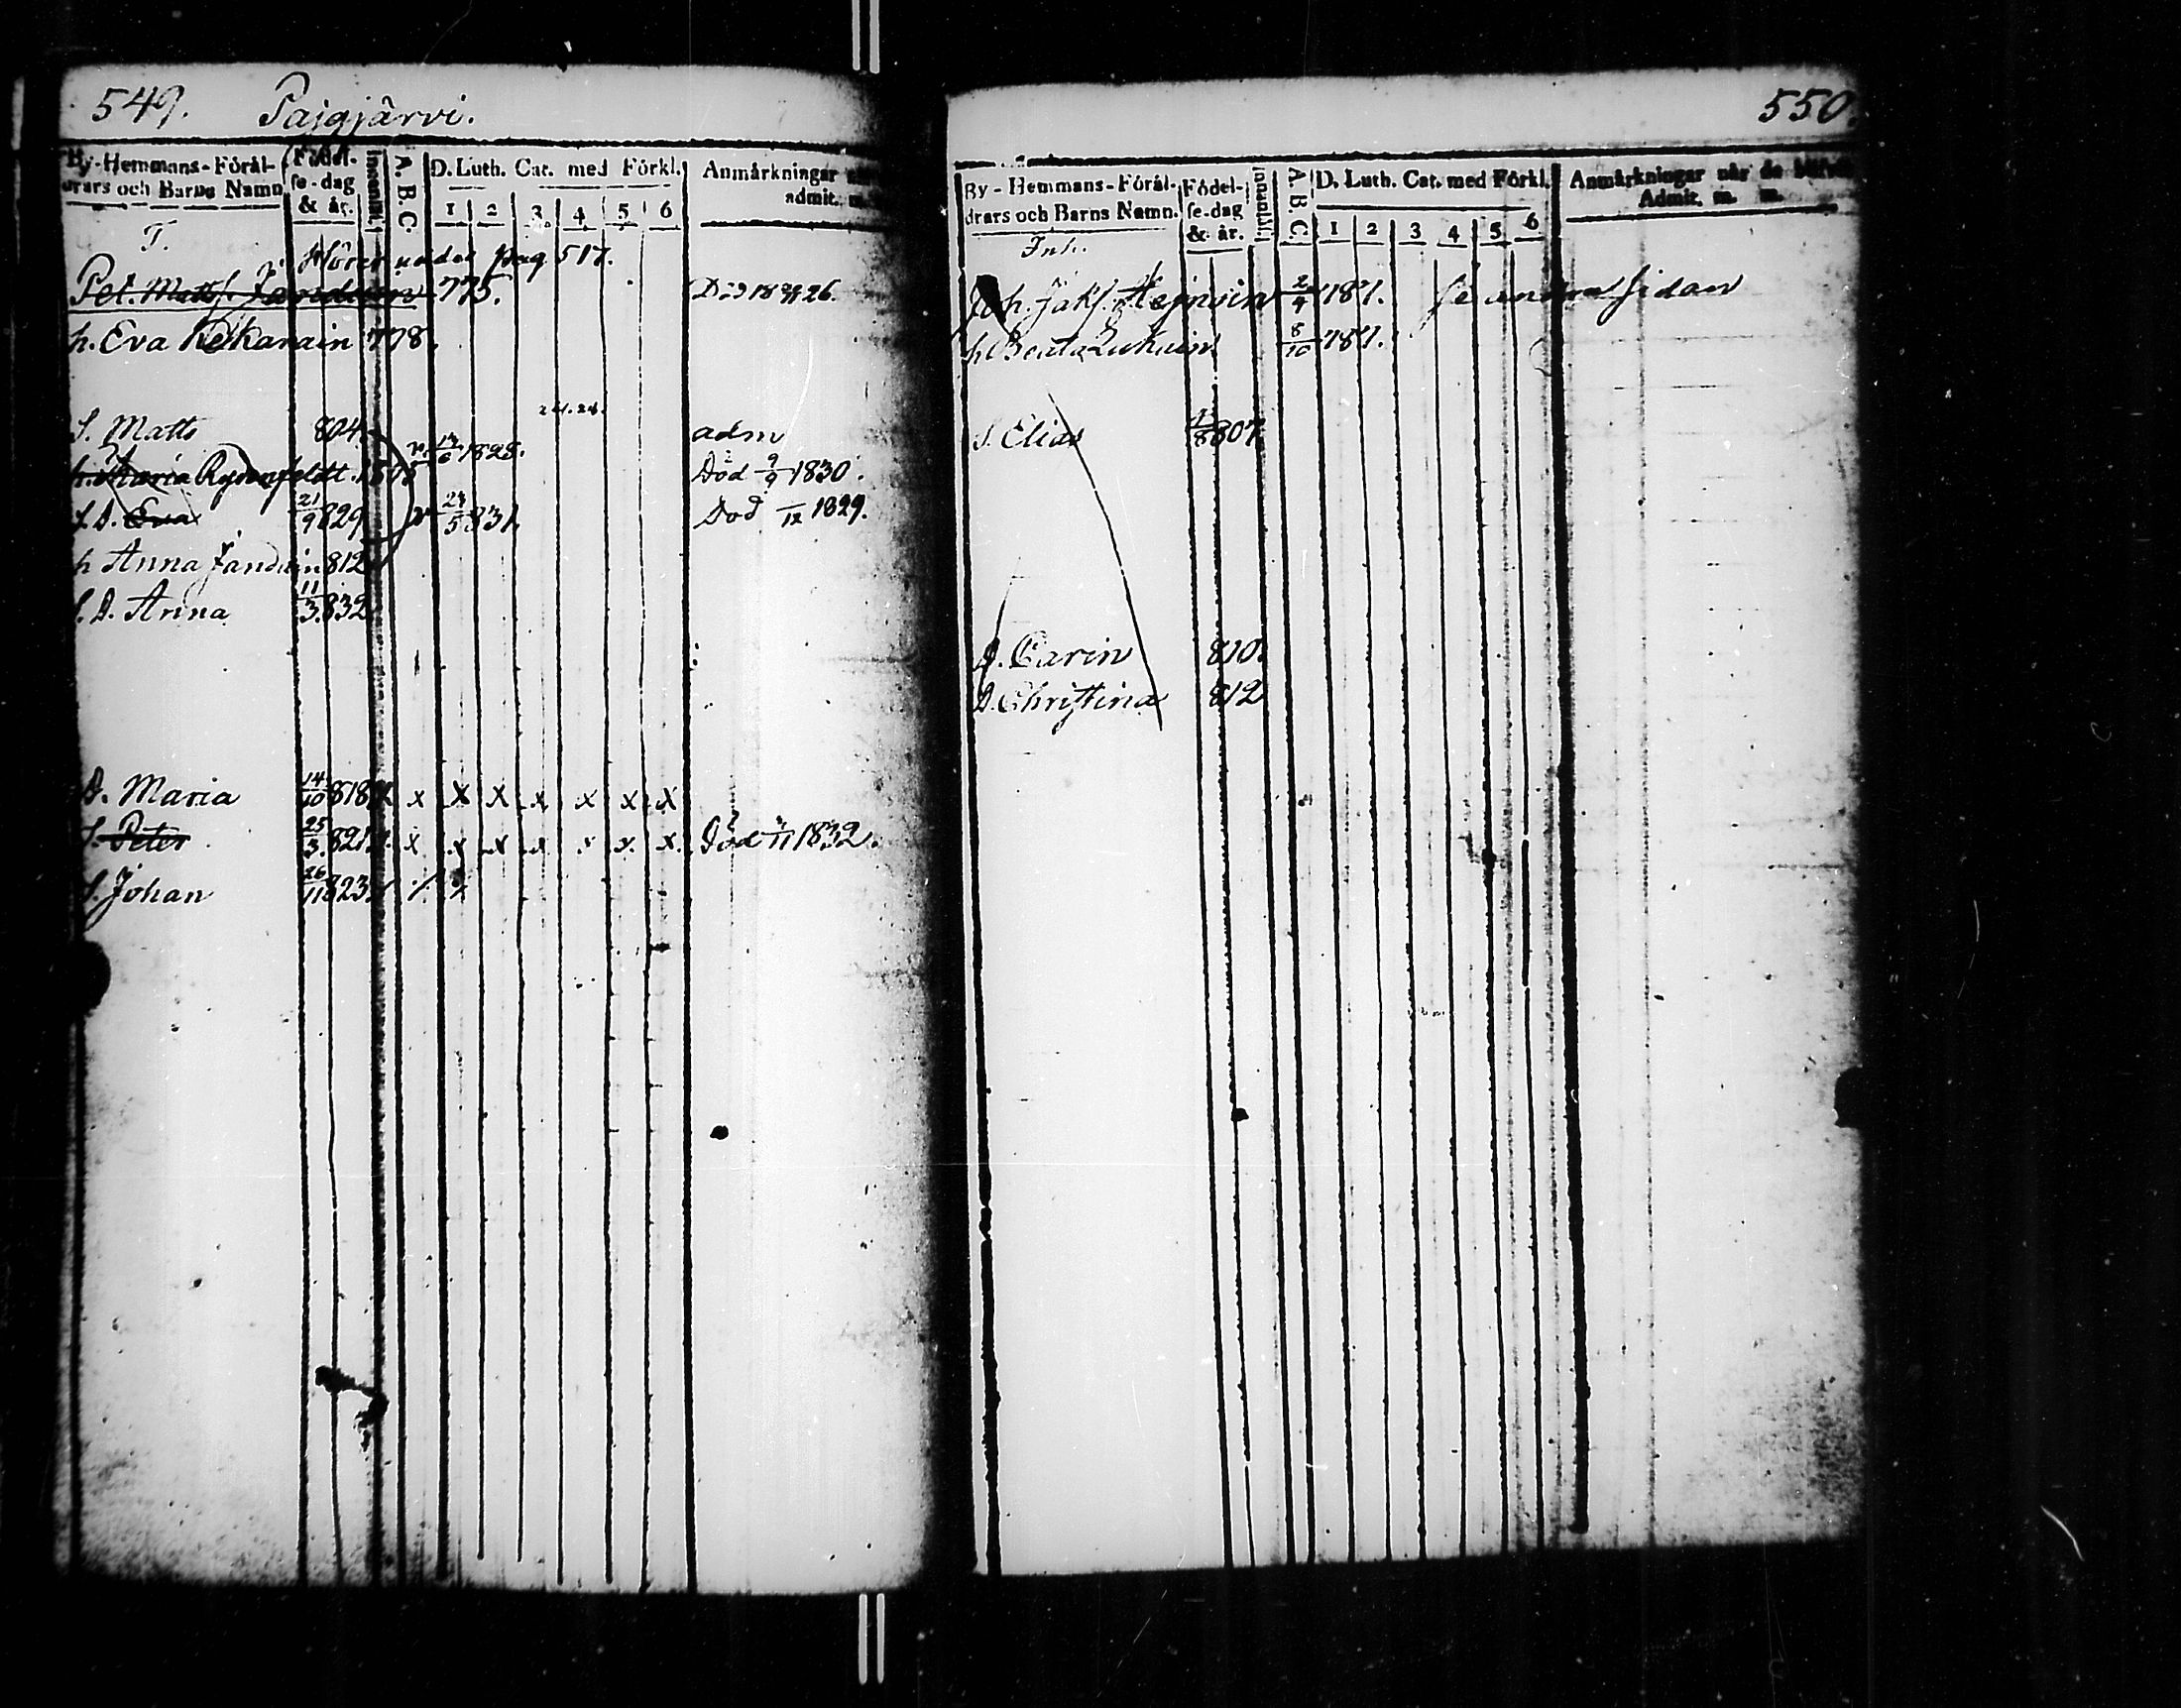 549. Pajgjärvi.
By-Hemmans-Föräl-
drars och Barns Namn
Födel-
se-dag
& år.
Innantil.
A. B. C.
D. Luth. Cat. med Förkl.
1 2 3 4 5 6
Anmärkningar
admit.
T.
Hörer under pag. 517.
Pet. Matts. 775.
h. Eva 778.
24.24.
S. Matts 804. adm
h. Maria Rydenfeldt. Död 9/9 1830.
v. 1828.
s. D. Eva 21/9 829 v 24/5 831. Död /12 1829.
h Anna 812
s. D. Anna 11/3 832
D. Maria 14/10 818 x x x x x x x
S. Peter 25/3. 821 x x x x x x x. Död /11 1832.
S. Johan 26/11 823
550.
By-Hemmans-Föräl-
drars och Barns Namn.
Födel-
se-dag
& år.
Innantil.
A. B. C.
D. Luth. Cat. med Förkl.
1 2 3 4 5 6
Anmärkningar når de
Admit. m. m.
Inh.
Joh. Jaks. 2/9 se andra sidan
h Beata 8/10 787.
S. Elias 807
D. Carin 810.
D. Christina 812